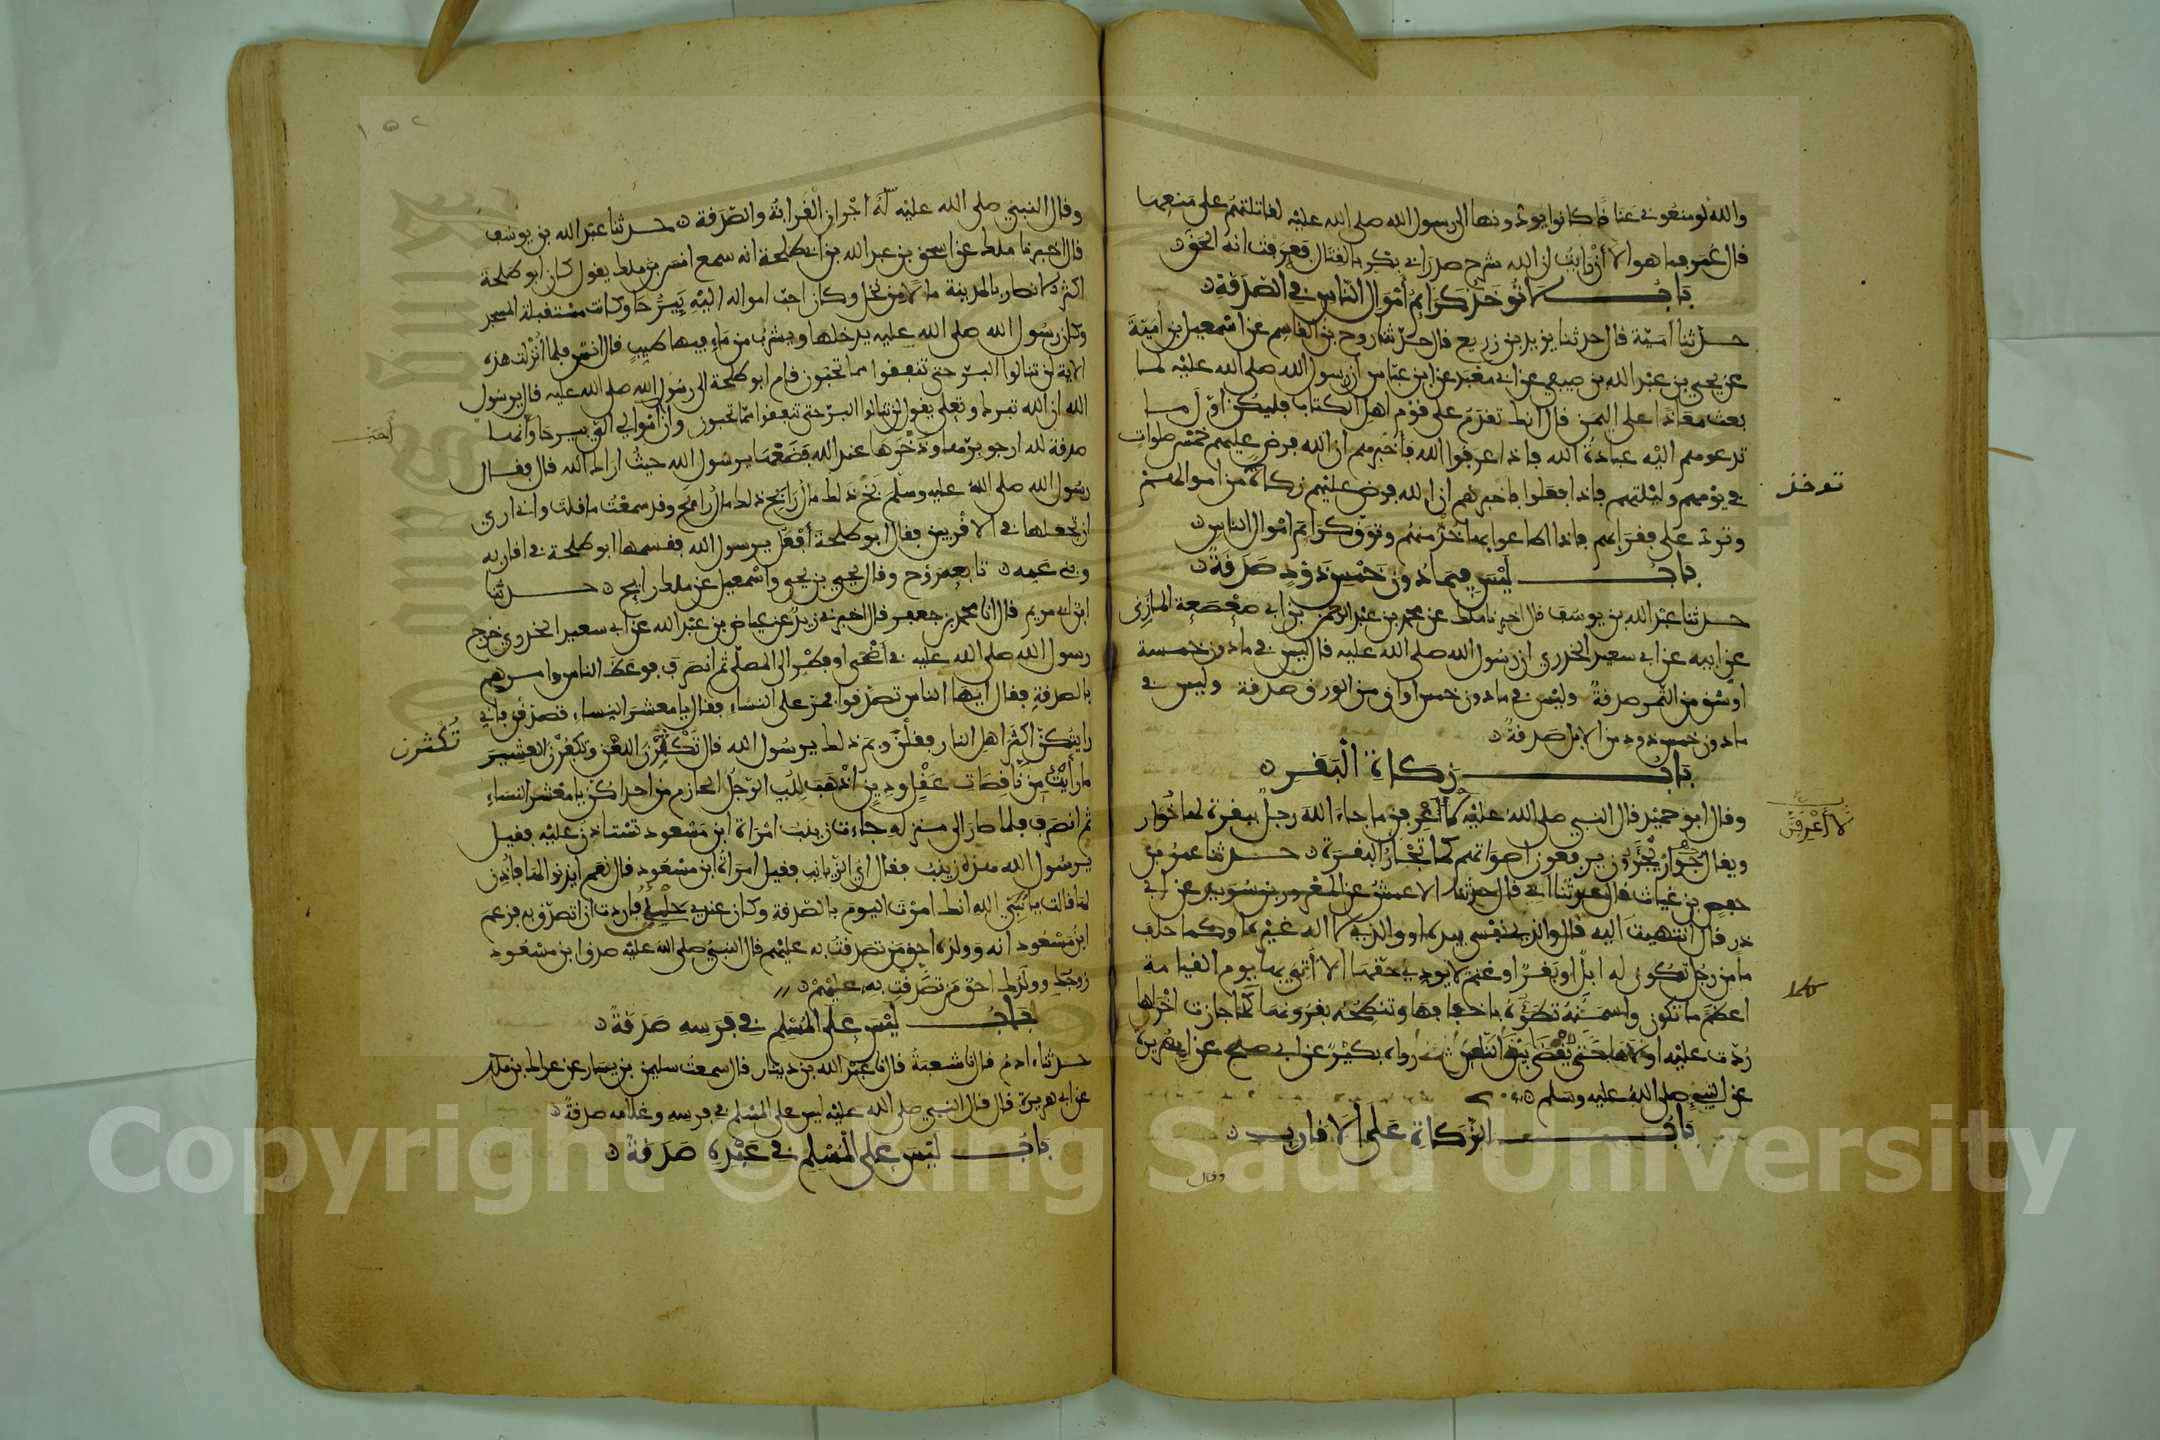 والله لو منعوني عناقا كانوا يؤدونها الى رسول الله صلى الله عليه لقاتلتهم على منعها
قال عمر فما هو الا أن رايت ان الله شرح صدر ابي بكر بالقتال فعرفت انه الحق
باب لا توخذ كرائم أموال الناس في الصدقة
حدثنا أمية قال حدثنا يزيد بن زريع قال حدثنا روح بن القاسم عن اسمعيل بن أمية
عن يحيى بن عبد الله بن صيفي عن ابي معبد عن ابن عباس أن رسول الله صلى الله عليه لما
بعث معاذا على اليمن قال انك تقدم على قوم اهل الكتاب فليكن اول ما
تدعوهم اليه عبادة الله فاذا عرفوا الله فاخبرهم ان الله فرض عليهم خمس صلوات
في يومهم وليلتهم فاذا فعلوا فاخبرهم ان الله فرض عليهم زكاة من اموالهم
توخذ
وترد على فقرائهم فاذا اطاعوا بها فخذ منهم وتوق كرائم اموال الناس
باب ليس فيما دون خمس ذود صدقة
حدثنا عبد الله بن يوسف قال اخبرنا ملك عن محمد بن عبد الرحمن بن ابي صعصعة المازني
عن ابيه عن ابي سعيد الخدري ان رسول الله صلى الله عليه قال ليس في ما دون خمسة
اوسق من التمر صدقة وليس في ما دون خمس اواق من الورق صدقة وليس في
ما دون خمس ذود من الابل صدقة
باب زكاة البقر
وقال ابو حميد قال النبي صلى الله عليه لاعرفن ما جاء الله رجل ببقرة لها خوار
لا أعرفن
ويقال جؤار يجأرون يرفعون اصواتهم كما تجأر البقرة حدثنا عمر بن
حفص بن غياث قال حدثنا ابي قال حدثنا الاعمش عن المعرور بن سويد عن ابي
ذر قال انتهيت اليه قال والذي نفسي بيده او والذي لا اله غيره او كما حلف
ما من رجل تكون له ابل او بقر او غنم لا يودي حقها الا أتي بها يوم القيامة
اعظم ما تكون واسمنه تطؤه باخفافها وتنطحه بقرونها كلما جازت اخراها
كلما
ردت عليه اولاها حتى يقضى بين الناس رواه بكير عن ابي صلح عن ابي هريرة
عن النبي صلى الله عليه وسلم
باب الزكاة على الاقارب
وقال
١٥٢
وقال النبي صلى الله عليه له اجران القرابة والصدقة حدثنا عبد الله بن يوسف
قال اخبرنا ملك عن اسحق بن عبد الله بن ابي طلحة انه سمع انس بن ملك يقول كان ابو طلحة
اكثر الانصار بالمدينة مالا من نخل وكان احب امواله اليه بيرحا وكانت مستقبلة المسجد
وكان رسول الله صلى الله عليه يدخلها ويشرب من ماء فيها طيب قال انس فلما أنزلت هذه
الاية لن تنالوا البر حتى تنفقوا مما تحبون قام ابو طلحة الى رسول الله صلى الله عليه فقال يرسول
الله ان الله تبرك وتعلى يقول لن تنالوا البر حتى تنفقوا مما تحبون وان أموالي الي بيرحا وأنها
أحب
صدقة لله ارجو برها وذخرها عند الله فضعها يرسول الله حيث اراك الله قال فقال
رسول الله صلى الله عليه وسلم بخ ذلك مال رابح ذلك مال رابح وقد سمعت ما قلت واني اري
ان تجعلها في الاقربين فقال ابو طلحة أفعل يرسول الله فقسمها ابو طلحة في اقاربه
وبني عمه تابعه روح وقال يحيى بن يحيى واسمعيل عن ملك رايح حدثنا
ابن ابي مريم قال انا محمد بن جعفر قال اخبرني زيد عن عياض بن عبد الله عن ابي سعيد الخدري خرج
رسول الله صلى الله عليه في أضحى او فطر الى المصلى ثم انصرف فوعظ الناس وامرهم
بالصدقة فقال ايها الناس تصدقوا فمر على النساء فقال يا معشر النساء تصدقن فاني
رايتكن اكثر اهل النار فقلن وبم ذلك يرسول الله قال تكثرن اللعن وتكفرن العشير
تكثرن
ما رأيت من ناقصات عقل ودين اذهب للب الرجل الحازم من احداكن يا معشر النساء
ثم انصرف فلما صار الى منزله جاءت زينب امراة ابن مسعود تستاذن عليه فقيل
يرسول الله هذه زينب فقال اي الزيانب فقيل امراة ابن مسعود قال نعم ايذنوا لها فأذن
لها قالت يا نبي الله انك امرت اليوم بالصدقة وكان عندي حلي فاردت ان اتصدق به فزعم
ابن مسعود انه وولده احق من تصدقت به عليهم قال النبي صلى الله عليه صدق ابن مسعود
زوجك وولدك احق من تصدقت به عليهم
باب ليس على المسلم في فرسه صدقة
حدثنا ادم قال نا شعبة قال نا عبد الله بن دينار قال سمعت سليمن بن يسار عن عراك بن ملك
عن ابي هريرة قال قال النبي صلى الله عليه ليس على المسلم في فرسه وغلامه صدقة
باب ليس على المسلم في عبده صدقة
Copyright © King Saud University